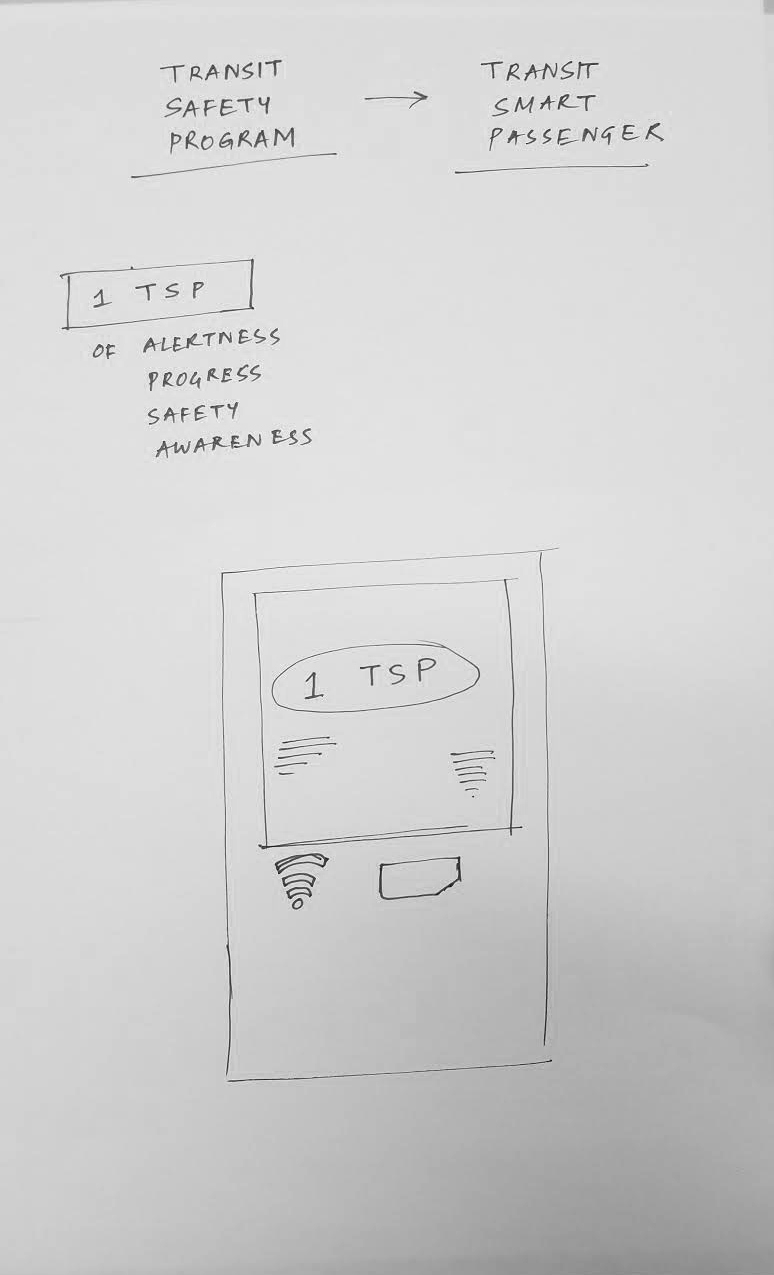 TRANSIT
SAFETY
PROGRAM
→
TRANSIT
SMART
PASSENGER
1 TSP
OF ALERTNESS
PROGRESS
SAFETY
AWARENESS
1 TSP